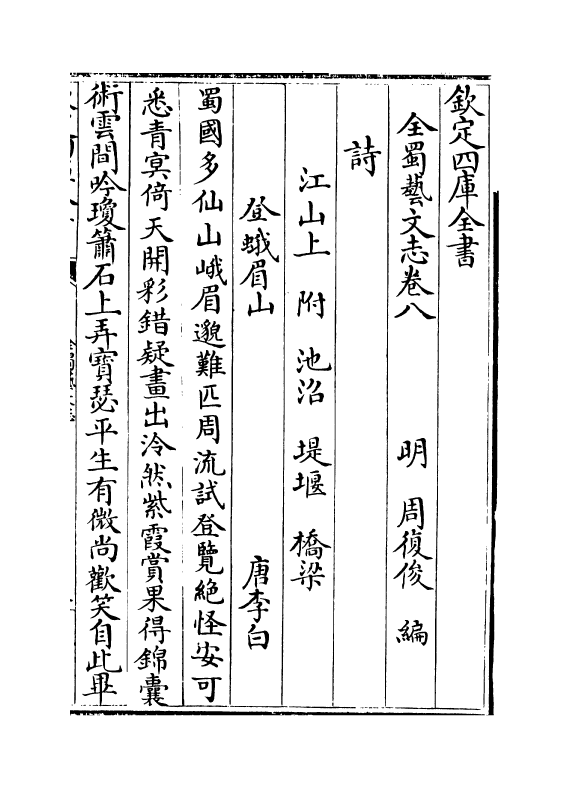 欽定四庫全書
全蜀藝文志卷八
明 周復俊 編
詩
江山上 附 池沼 堤堰 橋梁
登蛾眉山 唐李白
蜀國多仙山峨眉邈難匹周流試登覽絶怪安可
悉青㝠倚天開彩錯疑畫出泠然紫霞賞果得錦囊
術雲間吟瓊簫石上弄寶瑟平生有微尚歡笑自此畢